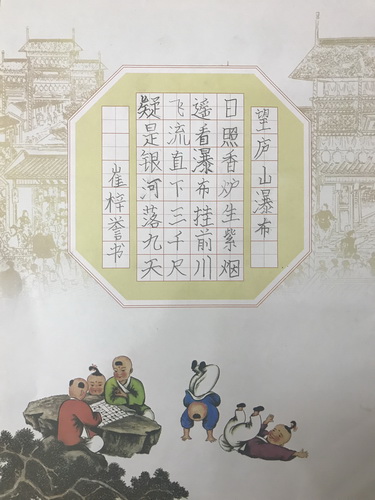 望庐山瀑布
日照香炉生紫烟
遥看瀑布挂前川
飞流直下三千尺
疑是银河落九天
崔梓誉书